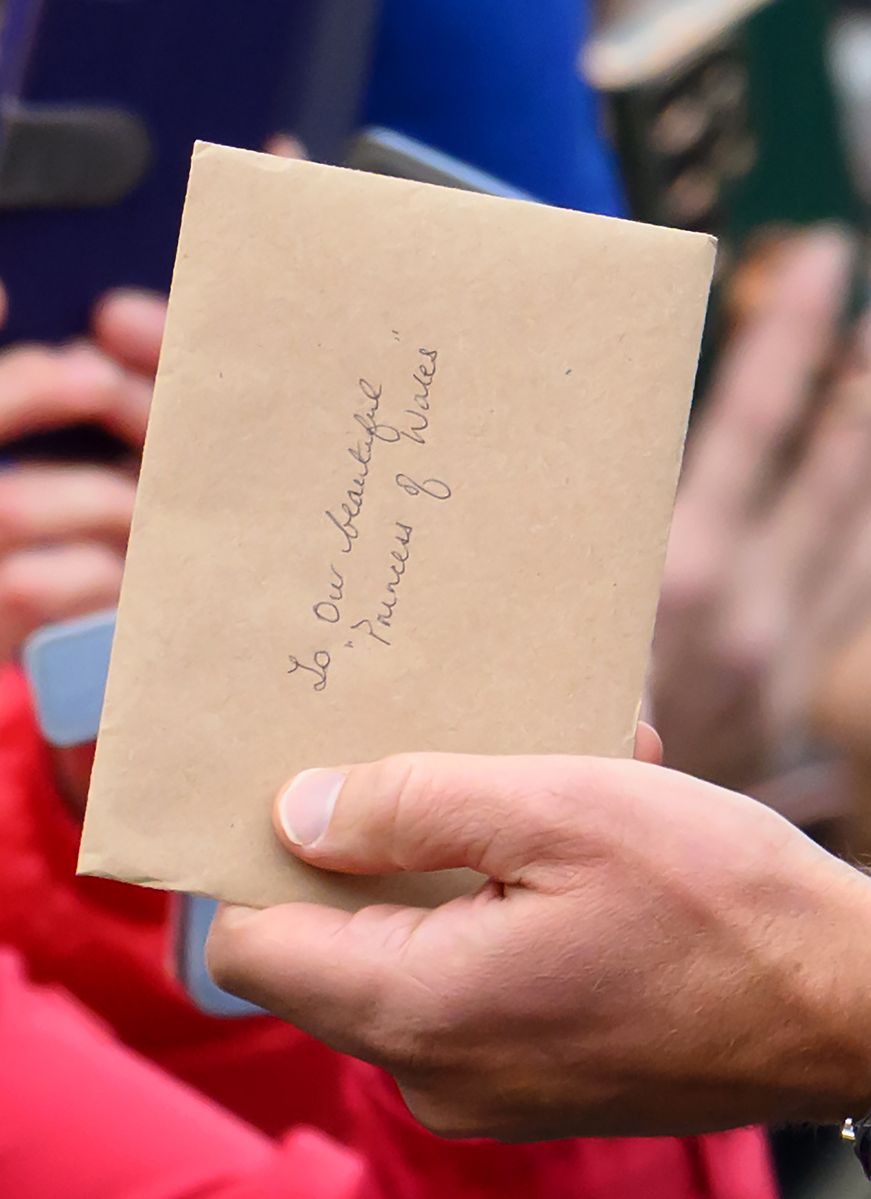 To Our beautiful
"Princess of Wales"